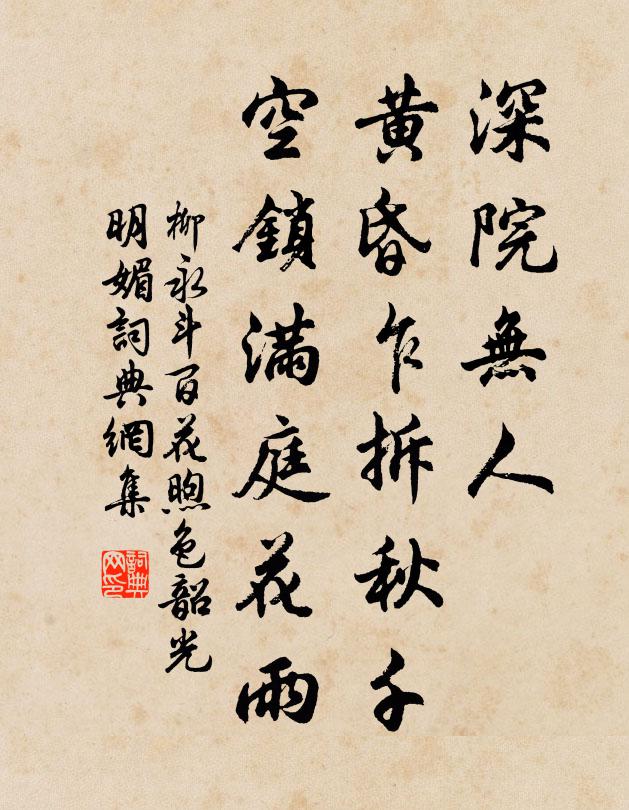 深院無人
黃昏乍拆秋千
空鎖滿庭花雨
柳永斗百花煦色韶光
明媚詞典網集
詞典
网印